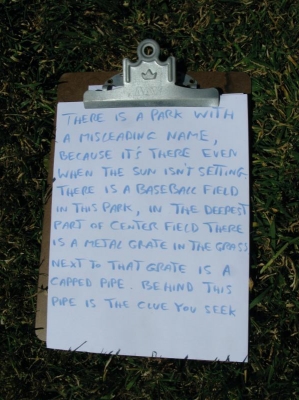 THERE IS A PARK WITH
A MISLEADING NAME,
BECAUSE IT'S THERE EVEN
WHEN THE SUN ISN'T SETTING
THERE IS A BASEBALL FIELD
IN THIS PARK, IN THE DEEPEST
PART OF CENTER FIELD THERE
IS A METAL GRATE IN THE GRASS
NEXT TO THAT GRATE IS A
CAPPED PIPE. BEHIND THIS
PIPE IS THE CLUE YOU SEEK